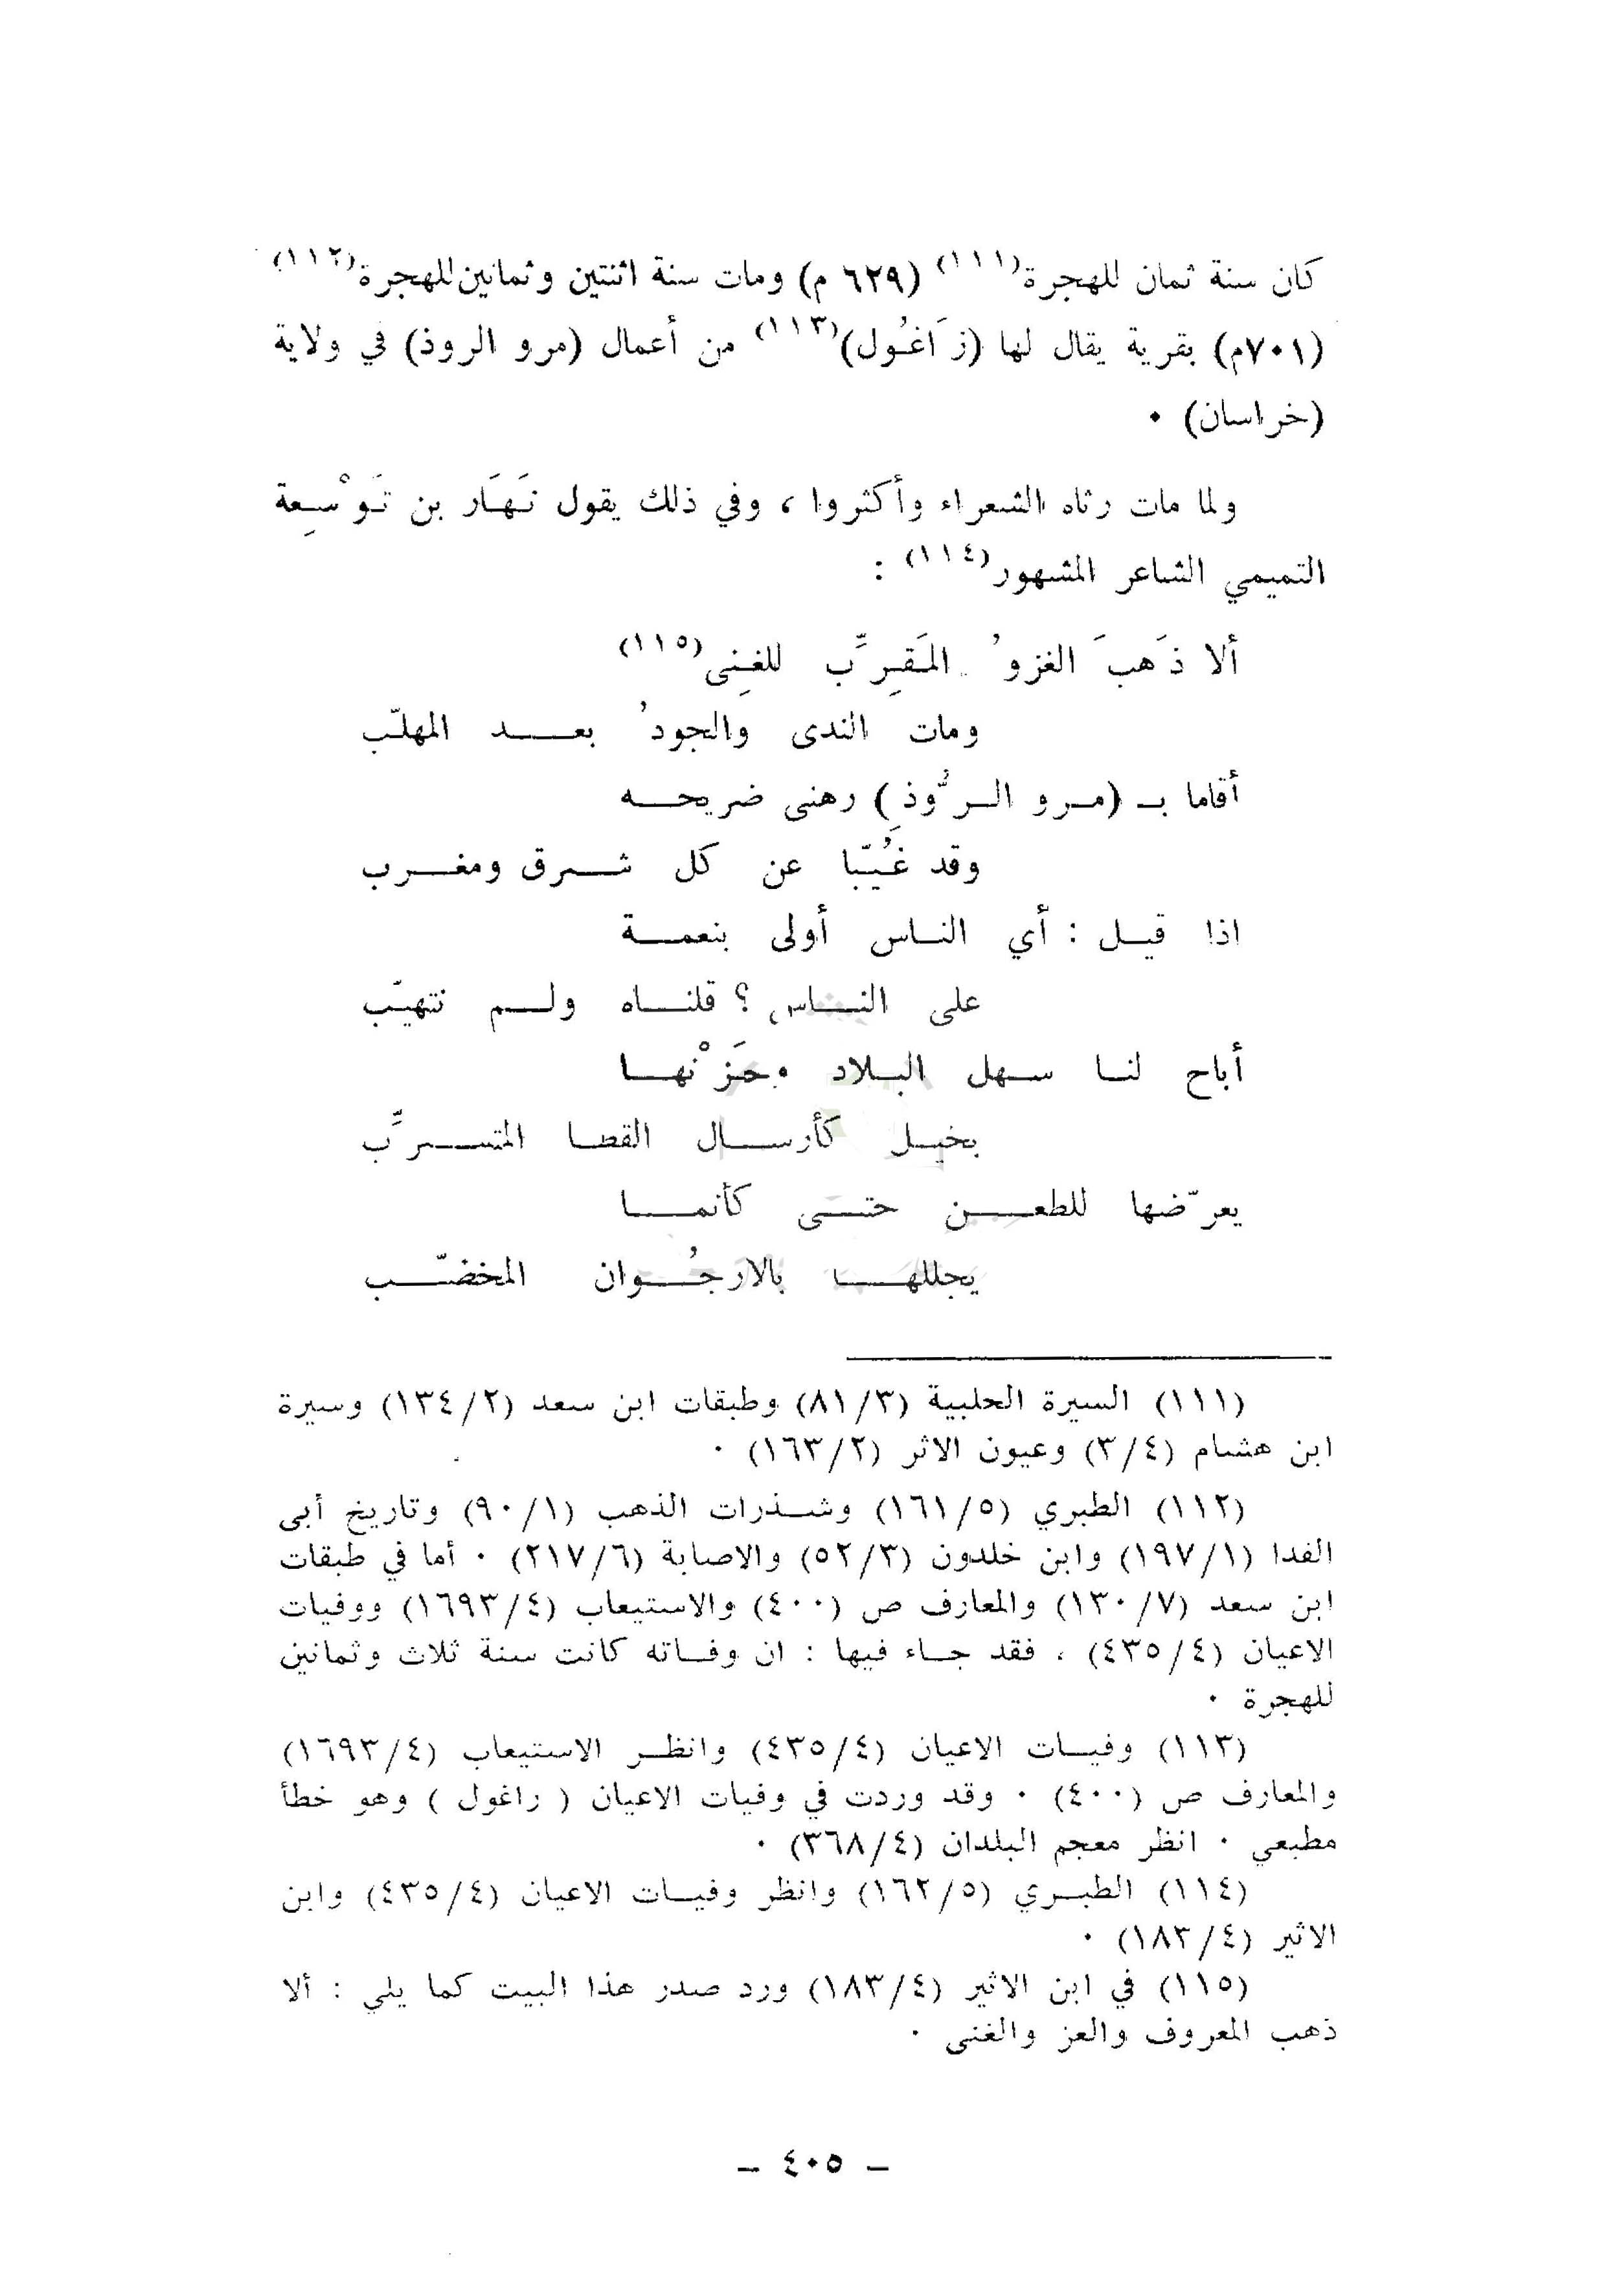 كان سنة ثمان للهجرة(١١١) (٦٢٩ م) ومات سنة اثنتين وثمانين للهجرة(١١٢)
(٧٠١م) بقرية يقال لها (زَاغُول)(١١٣) من أعمال (مرو الروذ) في ولاية
(خراسان) ٠
ولما مات رثاه الشعراء وأكثروا ، وفي ذلك يقول نَهَار بن تَوْسِعة
التميمي الشاعر المشهور(١١٤) :
ألا ذَهبَ الغزوُ المَقرِّب للغِنى(١١٥)
ومات الندى والجودُ بعــد المهلّب
أقاما بـ (مرو الرُّوذِ) رهنى ضريحه
وقد غُيِّبا عن كل شرق ومغرب
اذا قيل : أي الناس أولى بنعمة
على الناس ؟ قلناه ولم نتهيّب
أباح لنا سهل البلاد وحَزْنها
بخيل كأرسال القطا المتسرِّب
يعرّضها للطعن حتى كأنما
يجللها بالارجُوان المخضّب
(١١١) السيرة الحلبية (٨١/٣) وطبقات ابن سعد (١٣٤/٢) وسيرة
ابن هشام (٣/٤) وعيون الاثر (١٦٣/٢) ٠
(١١٢) الطبري (١٦١/٥) وشذرات الذهب (٩٠/١) وتاريخ أبى
الفدا (١٩٧/١) وابن خلدون (٥٢/٣) والاصابة (٢١٧/٦) ٠ أما في طبقات
ابن سعد (١٣٠/٧) والمعارف ص (٤٠٠) والاستيعاب (١٦٩٣/٤) ووفيات
الاعيان (٤٣٥/٤) ، فقد جاء فيها : ان وفاته كانت سنة ثلاث وثمانين
للهجرة ٠
(١١٣) وفيات الاعيان (٤٣٥/٤) وانظر الاستيعاب (١٦٩٣/٤)
والمعارف ص (٤٠٠) ٠ وقد وردت في وفيات الاعيان ( راغول ) وهو خطأ
مطبعي ٠ انظر معجم البلدان (٣٦٨/٤) ٠
(١١٤) الطبري (١٦٢/٥) وانظر وفيات الاعيان (٤٣٥/٤) وابن
الاثير (١٨٣/٤) ٠
(١١٥) في ابن الاثير (١٨٣/٤) ورد صدر هذا البيت كما يلي : ألا
ذهب المعروف والعز والغنى ٠
– ٤٠٥ –